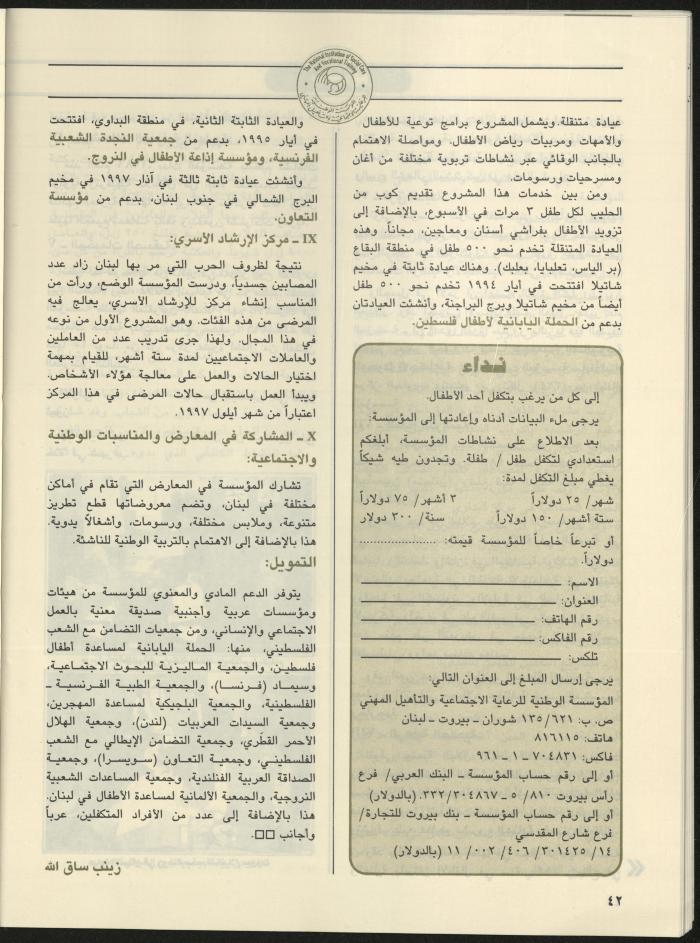 The National Institution of Social Care
And Vocational Training
عيادة متنقلة. ويشمل المشروع برامج توعية للأطفال
والأمهات ومربيات رياض الأطفال. ومواصلة الاهتمام
بالجانب الوقائي عبر نشاطات تربوية مختلفة من أغان
ومسرحيات ورسومات.
ومن بين خدمات هذا المشروع تقديم كوب من
الحليب لكل طفل ٣ مرات في الأسبوع، بالإضافة إلى
تزويد الأطفال بفراشي أسنان ومعاجين، مجاناً. وهذه
العيادة المتنقلة تخدم نحو ٥٠٠ طفل في منطقة البقاع
(بر الياس، تعلبايا، بعلبك). وهناك عيادة ثابتة في مخيم
شاتيلا افتتحت في أيار ١٩٩٤ تخدم نحو ٥٠٠ طفل
أيضاً من مخيم شاتيلا وبرج البراجنة، وأنشئت العيادتان
بدعم من الحملة اليابانية لأطفال فلسطين.
نداء
إلى كل من يرغب بتكفل أحد الأطفال.
يرجى ملء البيانات أدناه وإعادتها إلى المؤسسة:
بعد الاطلاع على نشاطات المؤسسة، أبلغكم
استعدادي لتكفل طفل / طفلة. وتجدون طيه شيكاً
يغطي مبلغ التكفل لمدة:
شهر/ ٢٥ دولاراً ٣ أشهر/ ٧٥ دولاراً
ستة أشهر/ ١٥٠ دولاراً سنة/ ٣٠٠ دولار
أو تبرعاً خاصاً للمؤسسة قيمته: ......................
دولاراً.
الاسم:
العنوان:
رقم الهاتف:
رقم الفاكس:
تلكس:
يرجى إرسال المبلغ إلى العنوان التالي:
المؤسسة الوطنية للرعاية الاجتماعية والتأهيل المهني
ص. ب: ١٣٥/٦٢١ شوران ـ بيروت ـ لبنان
هاتف: ٨١٦١١٥
فاكس: ٧٠٤٨٣١ ـ ١ ـ ٩٦١
أو إلى رقم حساب المؤسسة ـ البنك العربي/ فرع
رأس بيروت ٨١٠/ ٥ ـ ٣٣٢/٣٠٤٨٦٧. (بالدولار)
أو إلى رقم حساب المؤسسة ـ بنك بيروت للتجارة/
فرع شارع المقدسي
١٤/ ٣٠١٤٢٥/ ٤٠٦/ ٠٠٢/ ١١ (بالدولار)
والعيادة الثابتة الثانية، في منطقة البداوي، افتتحت
في أيار ١٩٩٥، بدعم من جمعية النجدة الشعبية
الفرنسية، ومؤسسة إذاعة الأطفال في النروج.
وأنشئت عيادة ثابتة ثالثة في آذار ١٩٩٧ في مخيم
البرج الشمالي في جنوب لبنان، بدعم من مؤسسة
التعاون.
IX ـ مركز الإرشاد الأسري:
نتيجة لظروف الحرب التي مر بها لبنان زاد عدد
المصابين جسدياً، ودرست المؤسسة الوضع، ورأت من
المناسب إنشاء مركز للإرشاد الأسري، يعالج فيه
المرضى من هذه الفئات. وهو المشروع الأول من نوعه
في هذا المجال. ولهذا جرى تدريب عدد من العاملين
والعاملات الاجتماعيين لمدة ستة أشهر، للقيام بمهمة
اختيار الحالات والعمل على معالجة هؤلاء الأشخاص.
ويبدأ العمل باستقبال حالات المرضى في هذا المركز
اعتباراً من شهر أيلول ١٩٩٧.
X ـ المشاركة في المعارض والمناسبات الوطنية
والاجتماعية:
تشارك المؤسسة في المعارض التي تقام في أماكن
مختلفة في لبنان، وتضم معروضاتها قطع تطريز
متنوعة، وملابس مختلفة، ورسومات، وأشغالاً يدوية.
هذا بالإضافة إلى الاهتمام بالتربية الوطنية للناشئة.
التمويل:
يتوفر الدعم المادي والمعنوي للمؤسسة من هيئات
ومؤسسات عربية وأجنبية صديقة معنية بالعمل
الاجتماعي والإنساني، ومن جمعيات التضامن مع الشعب
الفلسطيني، منها: الحملة اليابانية لمساعدة أطفال
فلسطين، والجمعية الماليزية للبحوث الاجتماعية،
وسيماد (فرنسا)، والجمعية الطبية الفرنسية ـ
الفلسطينية، والجمعية البلجيكية لمساعدة المهجرين،
وجمعية السيدات العربيات (لندن)، وجمعية الهلال
الأحمر القطري، وجمعية التضامن الإيطالي مع الشعب
الفلسطيني، وجمعية التعاون (سويسرا)، وجمعية
الصداقة العربية الفنلندية، وجمعية المساعدات الشعبية
النروجية، والجمعية الألمانية لمساعدة الأطفال في لبنان.
هذا بالإضافة إلى عدد من الأفراد المتكفلين، عرباً
وأجانب □□.
زينب ساق الله
٤٢